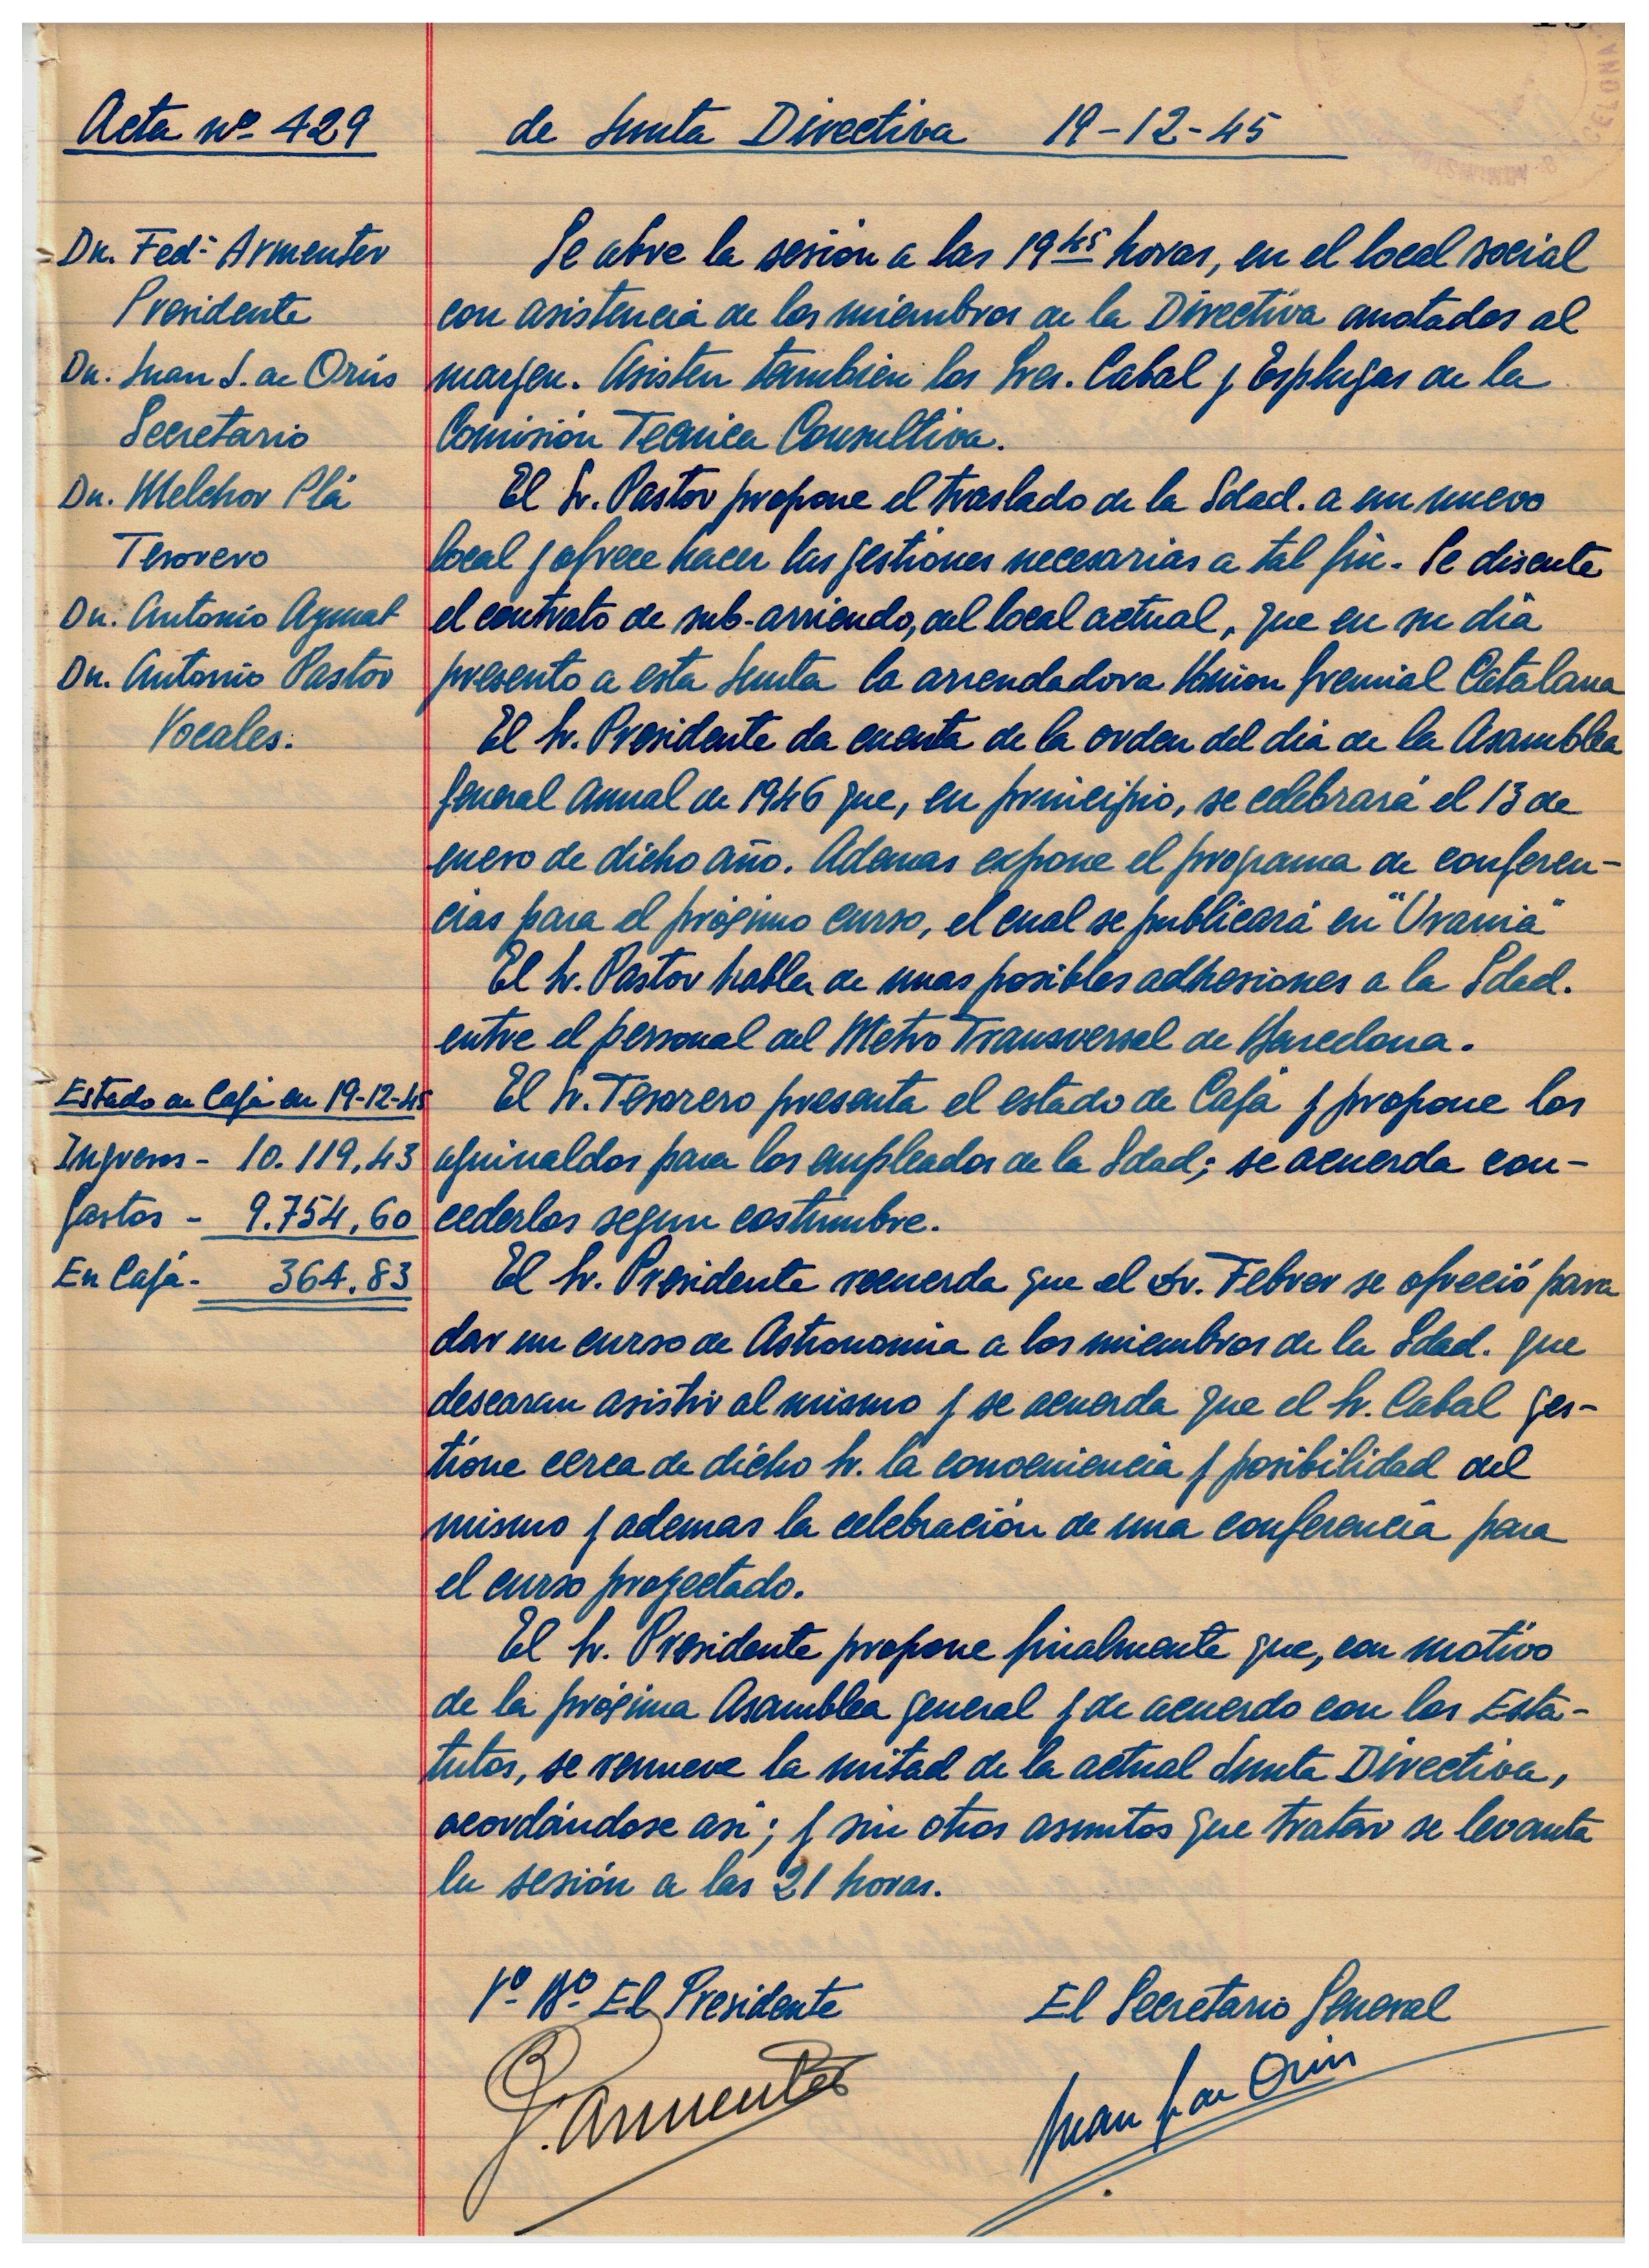 Acta nº 429
de Junta Directiva 19-12-45
Dn. Fedº Armenter
Presidente
Dn. Juan J. de Orús
Secretario
Dn. Melchor Plá
Tesorero
Dn. Antonio Aymat
Dn. Antonio Pastor
Vocales.
Se abre la sesión a las 19 45 horas, en el local social
con asistencia de los miembros de la Directiva anotados al
margen. Asisten tambien los Sres. Cabal y Esplugas de la
Comisión Tecnica Consultiva.
El Sr. Pastor propone el traslado de la Sdad. a un nuevo
local y ofrece hacer las gestiones necesarias a tal fin. Se discute
el contrato de sub-arriendo, del local actual, que en su dia
presento a esta Junta la arrendadora Union Gremial Catalana
El Sr. Presidente da cuenta de la orden del dia de la Asamblea
General Annual de 1946 que, en principio, se celebrará el 13 de
enero de dicho año. Ademas expone el programa de conferen-
cias para el próximo curso, el cual se publicará en "Urania"
El Sr. Pastor habla de unas posibles adhesiones a la Sdad.
entre el personal del Metro Transversal de Barcelona.
Estado de Caja en 19-12-45
Ingresos - 10.119,43
Gastos - 9.754,60
En Caja - 364,83
El Sr. Tesorero presenta el estado de Caja y propone los
aguinaldos para los empleados de la Sdad; se acuerda con-
cederlos segun costumbre.
El Sr. Presidente recuerda que el Sr. Febrer se ofreció para
dar un curso de Astronomia a los miembros de la Sdad. que
desearan asistir al mismo y se acuerda que el Sr. Cabal ges-
tione cerca de dicho Sr. la conveniencia y posibilidad del
mismo y ademas la celebración de una conferencia para
el curso proyectado.
El Sr. Presidente propone finalmente que, con motivo
de la próxima Asamblea general y de acuerdo con los Esta-
tutos, se renueve la mitad de la actual Junta Directiva,
acordándose asi; y sin otros asuntos que tratar se levanta
la sesión a las 21 horas.
Vº Bº El Presidente
El Secretario General
F. Armenter
Juan J. de Orús